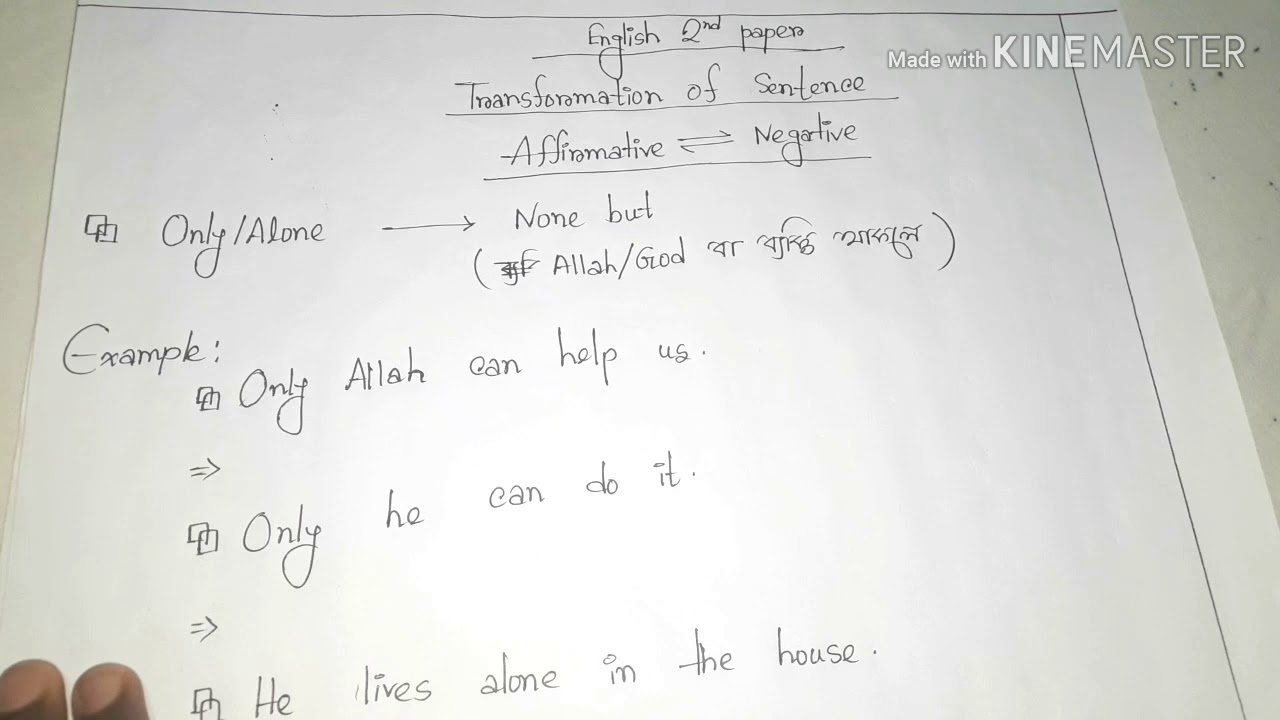 English 2nd paper
Made with KINEMASTER
Transformation of Sentence
Affirmative ⇌ Negative
Only/Alone → None but
(Allah/God বা ব্যক্তি থাকলে)
Example:
Only Allah can help us.
⇒
Only he can do it.
⇒
He lives alone in the house.